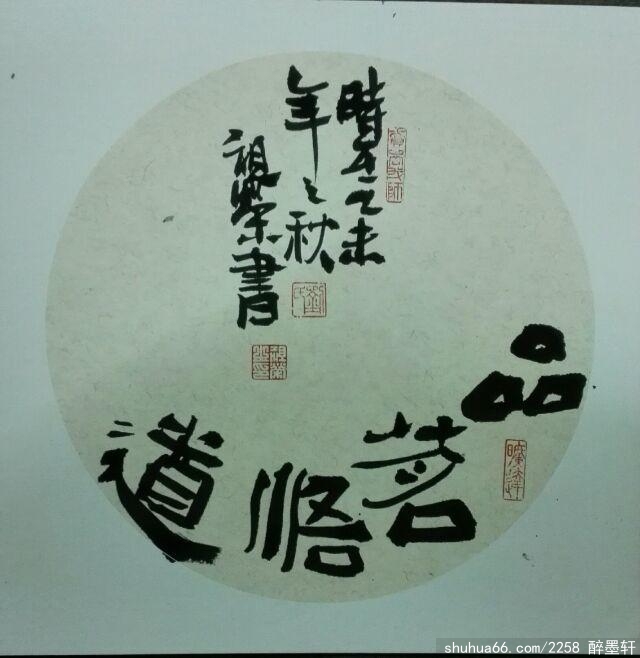 品茗悟道
時在乙未
年之秋
祖榮書
shuhua66.com/2258 醉墨轩